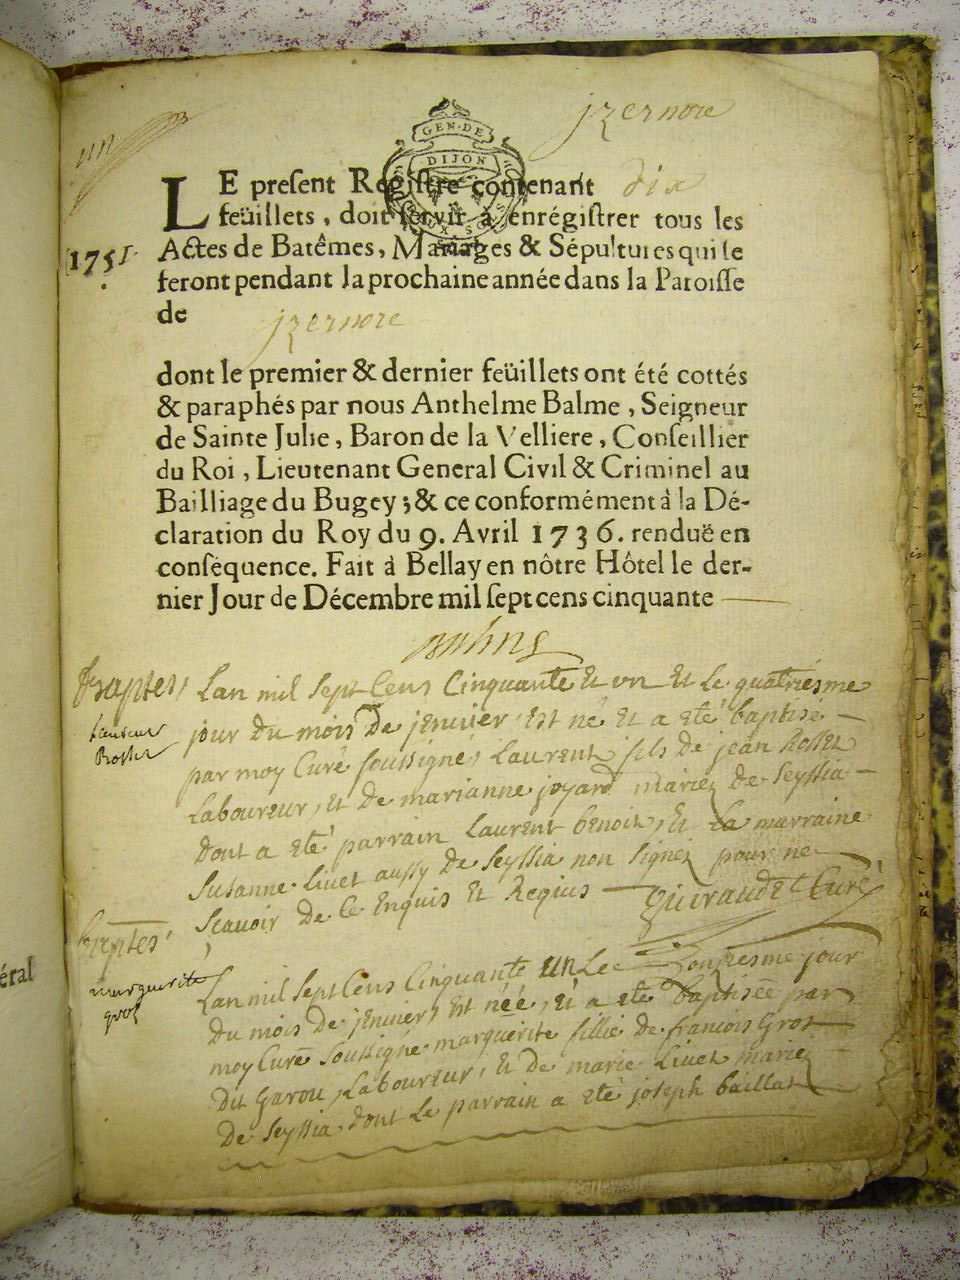 un
jzernore
GEN·DE
DIJON
LE preſent Regiſtre contenant dix
feüillets, doit ſervir à enrégiſtrer tous les
1751.
Actes de Batêmes, Mariages & Sépultures qui ſe
feront pendant la prochaine année dans la Paroiſſe
de jzernore
dont le premier & dernier feüillets ont été cottés
& paraphés par nous Anthelme Balme, Seigneur
de Sainte Julie, Baron de la Velliere, Conſeillier
du Roi, Lieutenant General Civil & Criminel au
Bailliage du Bugey; & ce conformément à la Dé-
claration du Roy du 9. Avril 1736. renduë en
conſéquence. Fait à Bellay en nôtre Hôtel le der-
nier Jour de Décembre mil ſept cens cinquante
Baptes
Lan mil sept Cens Cinquante Et un Et Le quatriesme
jour du mois De jenvier Est né Et a eté baptisé
par moy Curé soussigné, Laurent fils de jean Rosset
Laboureur, Et de marianne joyard mariez de Seyssia
dont a eté parrain Laurent benoit, Et La marraine
Susanne Livet aussy de Seyssia non signez pour ne
Scavoir de Ce Enquis Et Requis
Curé
Baptes
marguerite
gros
Lan mil sept Cens Cinquante un Le onziesme jour
du mois de jenvier, est néé, Et a eté baptisée par
moy Curé soussigné marguerite fillie de francois Gros
dit Garou, Laboureur, Et de marie Livet mariez
De Seyssia, dont Le parrain a eté joseph baillat
éral